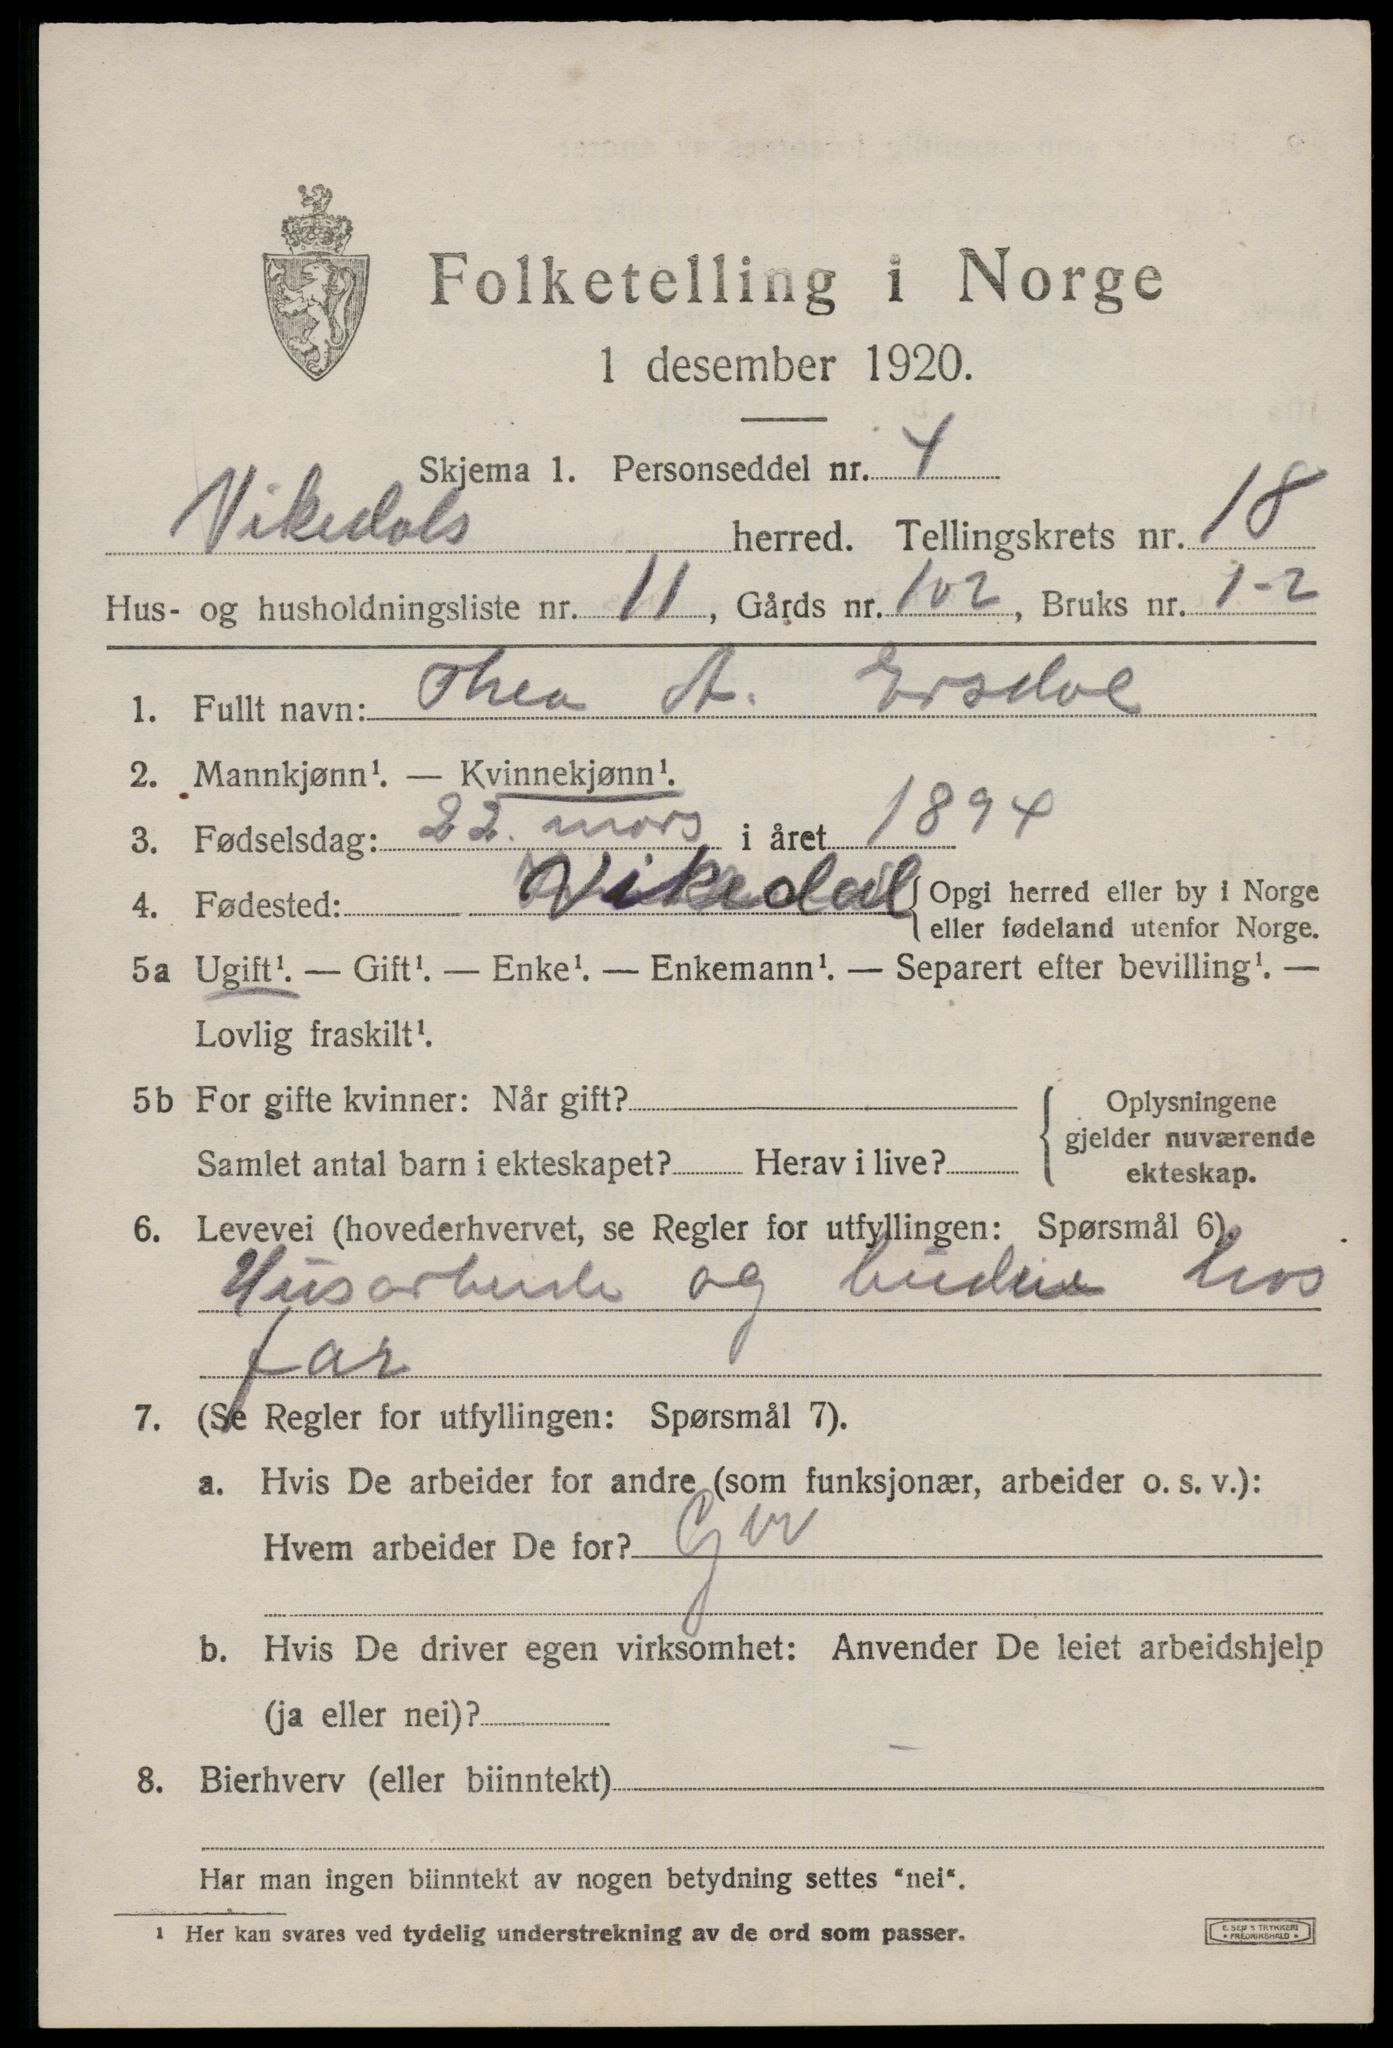 Folketelling i Norge
1 desember 1920.
Skjema 1. Personseddel nr. 4
Vikedals herred. Tellingskrets nr. 18
Hus- og husholdningsliste nr. 11, Gårds nr. 102, Bruks nr. 1-2
1. Fullt navn: Thea A. Ersdal
2. Mannkjønn¹. — Kvinnekjønn¹.
3. Fødselsdag: 22. mars i året 1894
4. Fødested: Vikedal { Opgi herred eller by i Norge
eller fødeland utenfor Norge.
5a Ugift¹. — Gift¹. — Enke¹. — Enkemann¹. — Separert efter bevilling¹. —
Lovlig fraskilt¹.
5b For gifte kvinner: Når gift? { Oplysningene
gjelder nuværende
Samlet antal barn i ekteskapet? Herav i live? ekteskap.
6. Levevei (hovederhvervet, se Regler for utfyllingen: Spørsmål 6).
Husarbeide og budeie hos
far
7. (Se Regler for utfyllingen: Spørsmål 7).
a. Hvis De arbeider for andre (som funksjonær, arbeider o. s. v.):
Hvem arbeider De for?
b. Hvis De driver egen virksomhet: Anvender De leiet arbeidshjelp
(ja eller nei)?
8. Bierhverv (eller biinntekt) -
Har man ingen biinntekt av nogen betydning settes "nei".
¹ Her kan svares ved tydelig understrekning av de ord som passer.
E. SEM'S TRYKKERI
* FREDRIKSHALD *